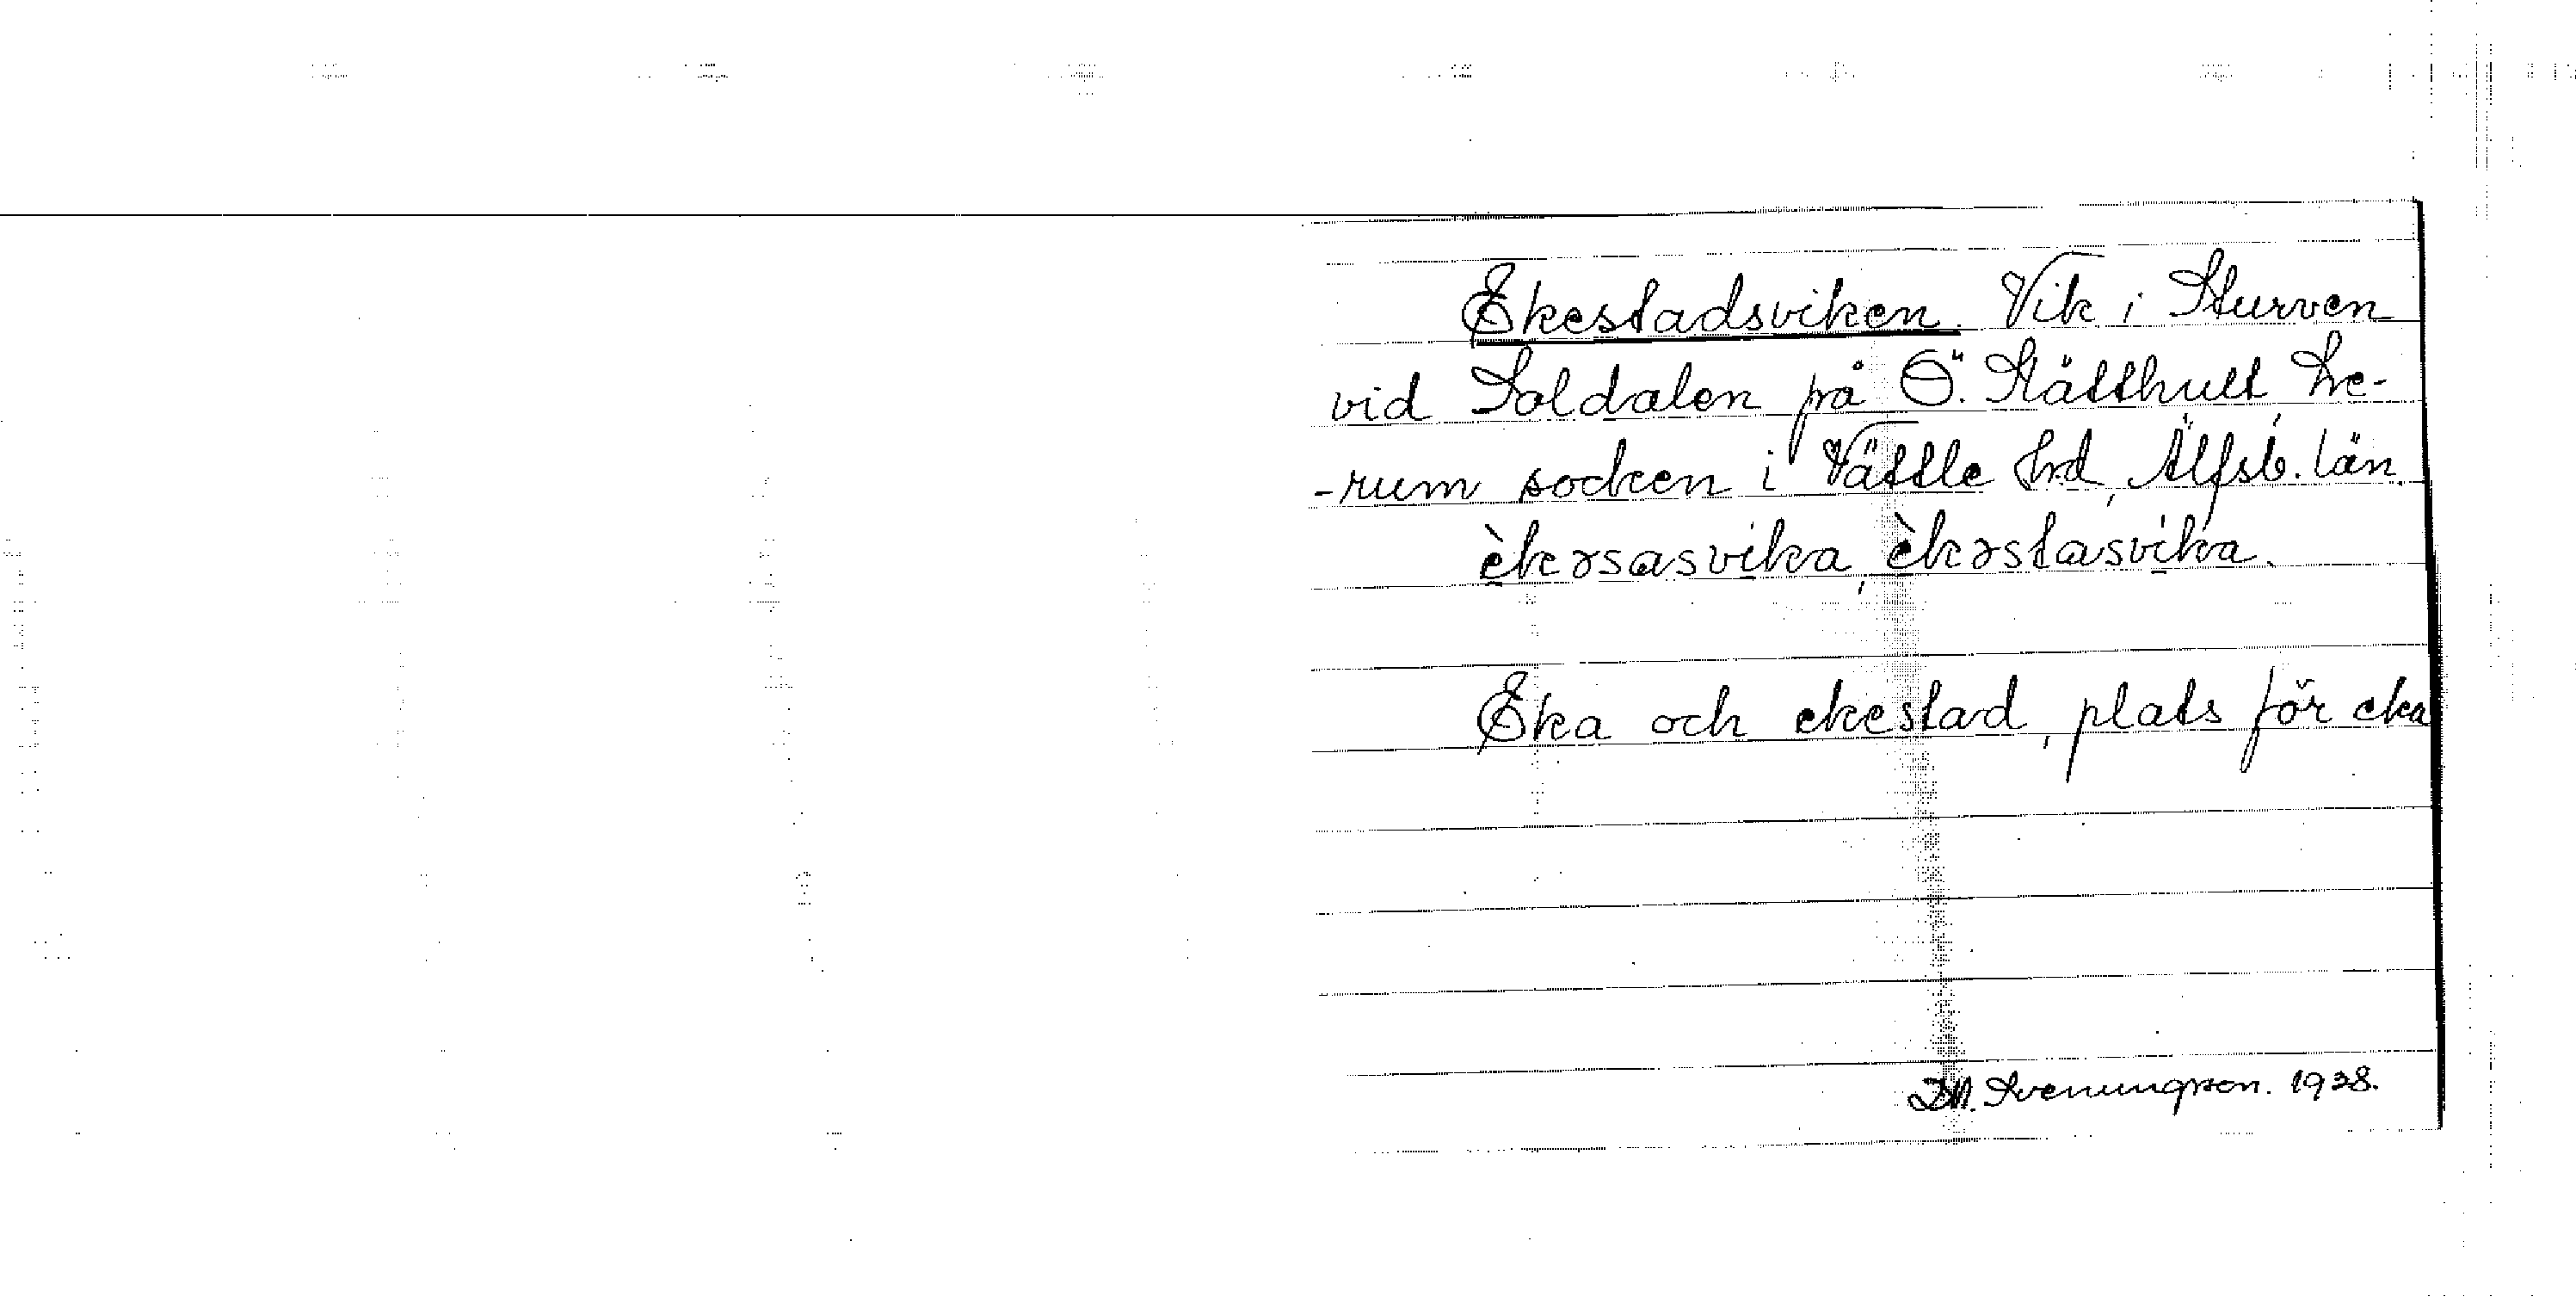 Ekestadsviken. Vik i Sturven
vid Soldalen på Ö. Stätthult, Le-
-rum socken i Vättle hrd, Älfsb. län.
èkəsasvika, èkəstasvika.
Eka och ekestad, plats för eka
Svenungson. 1938.